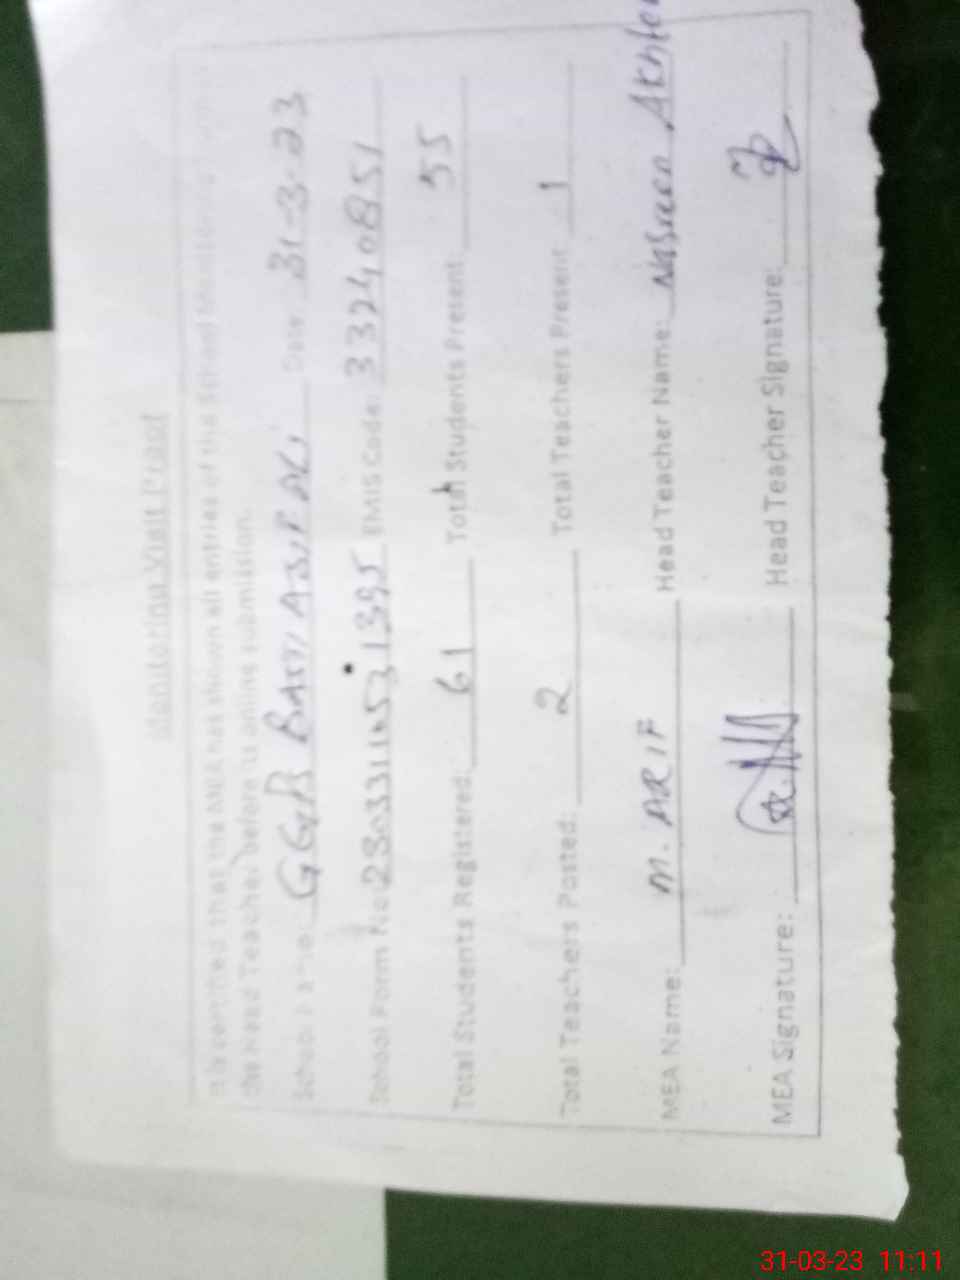 Monitoring Visit Proof
It is certified that the MEA has shown all entries of the School Monitoring
the Head Teacher before its online submission.
School Name: GGPS BASTI ASIF ALI Date: 31-3-23
School Form No: EMIS Code: 33240851
Total Students Registered: 61 Total Students Present: 55
Total Teachers Posted: 2 Total Teachers Present 1
MEA Name: M. ARIF Head Teacher Name: Nasreen Akhter
MEA Signature: Head Teacher Signature:
31-03-23 11:11